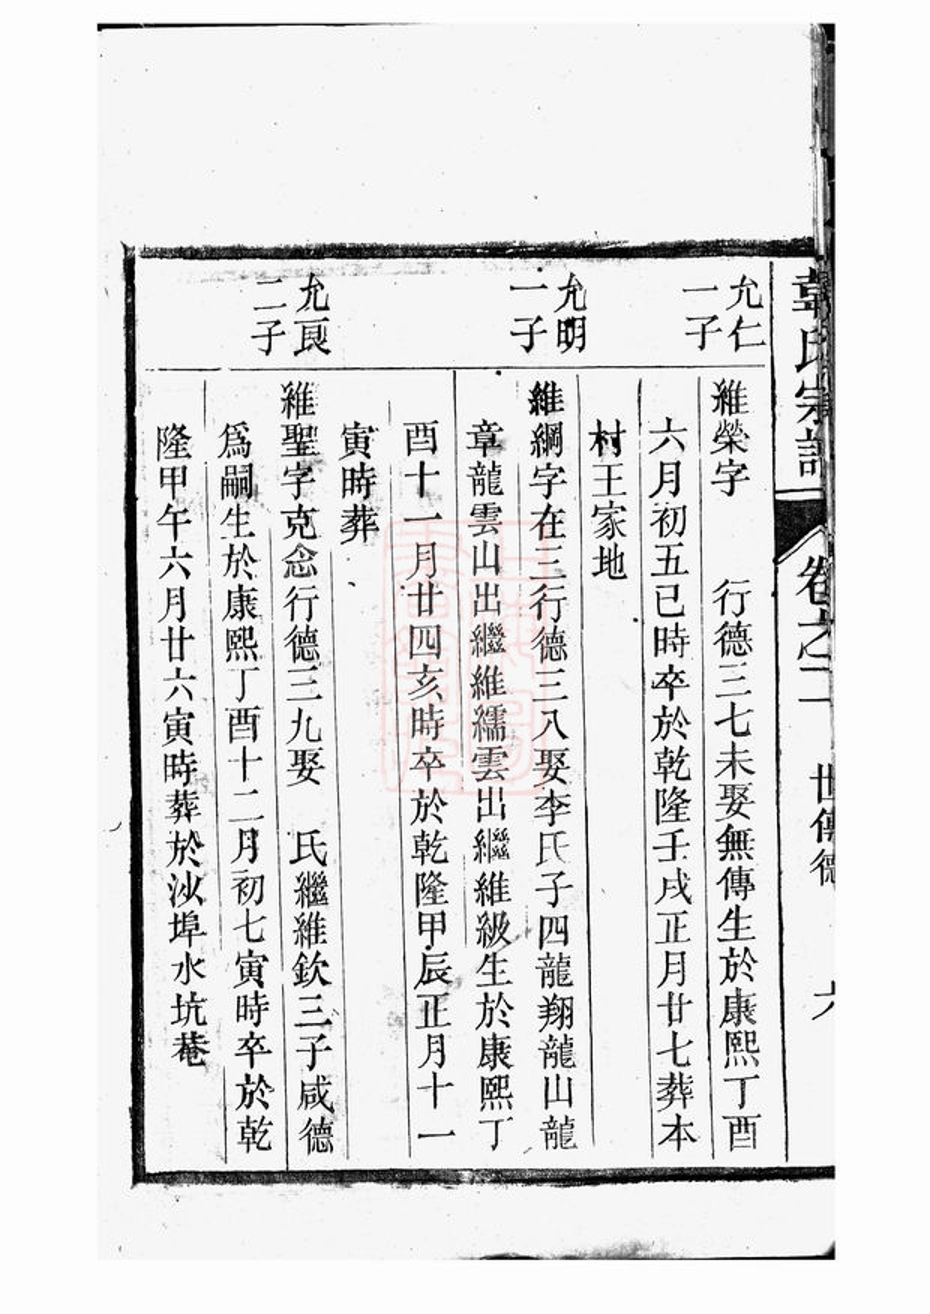 氏宗譜 卷之二 世傳德 六
允仁
一子
維榮字 行德三七未娶無傳生於康熙丁酉
六月初五巳時卒於乾隆壬戌正月廿七葬本
村王家地
允明
一子
維綱字在三行德三八娶李氏子四龍翔龍山龍
章龍雲山出繼維繻雲出繼維級生於康熙丁
酉十一月廿四亥時卒於乾隆甲辰正月十一
寅時葬
允良
二子
維聖字克念行德三九娶 氏繼維欽三子咸德
爲嗣生於康熙丁酉十二月初七寅時卒於乾
隆甲午六月廿六寅時葬於沙埠水坑菴